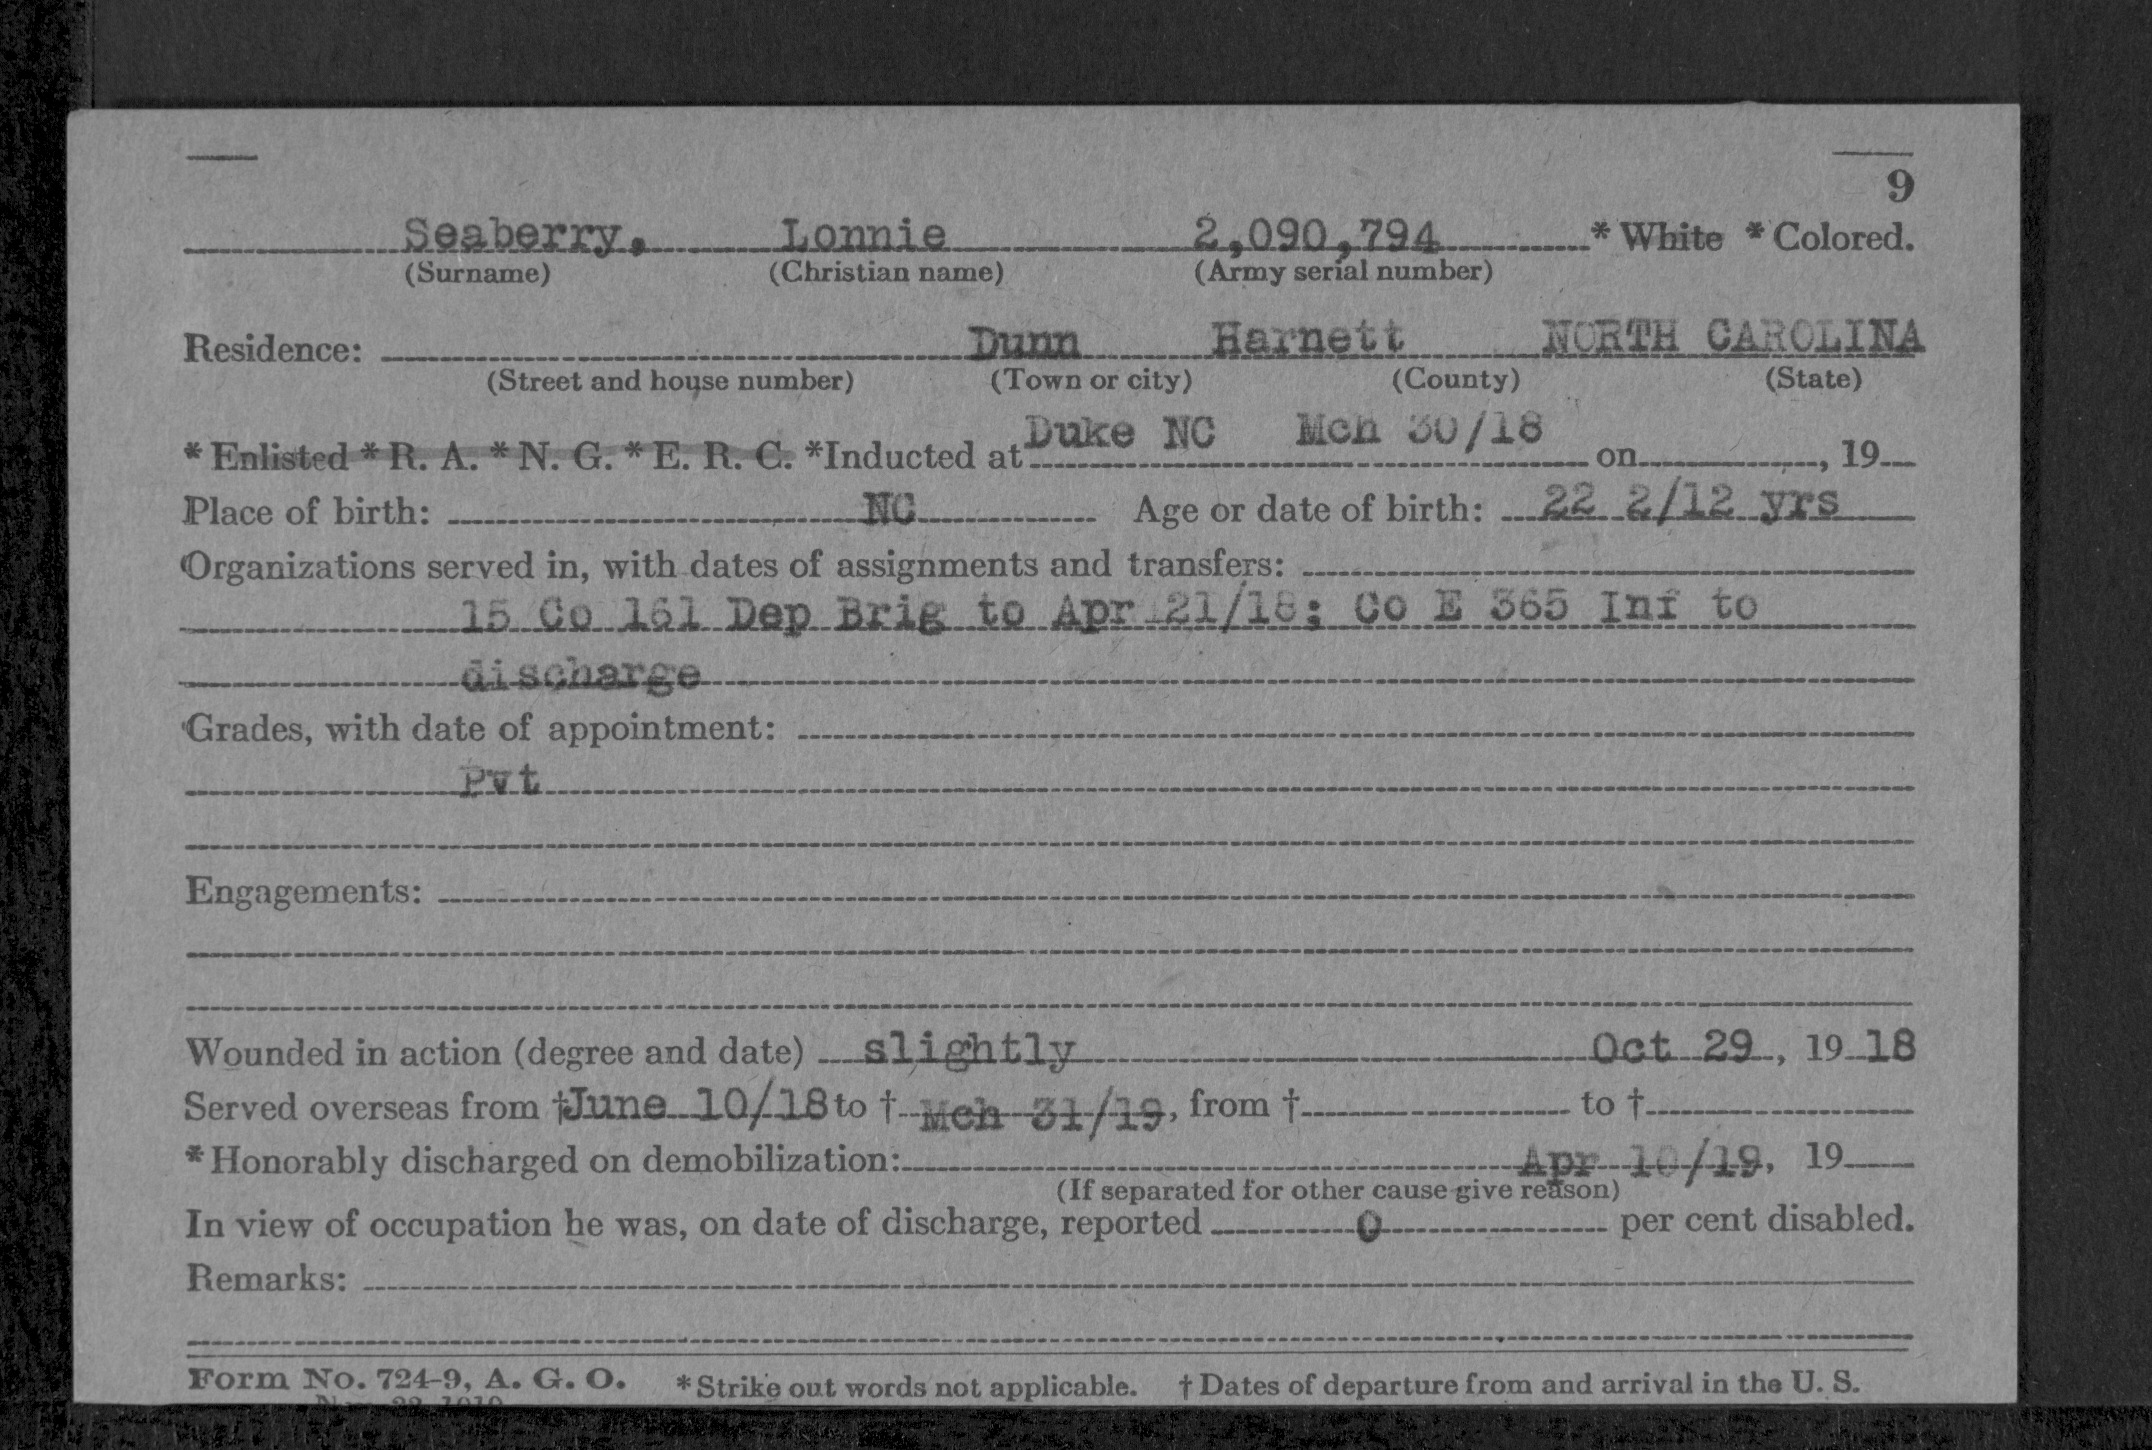 9
Seaberry, Lonnie 2,090,794 * White * Colored.
(Surname) (Christian name) (Army serial number)
Residence: Dunn Harnett NORTH CAROLINA
(Street and house number) (Town or city) (County) (State)
* Enlisted * R. A. * N. G. * E. R. C. *Inducted at Duke NC Mch 30/18 on , 19
Place of birth: NC Age or date of birth: 22 2/12 yrs
Organizations served in, with dates of assignments and transfers:
15 Co 161 Dep Brig to Apr 21/18; Co E 365 Inf to
discharge
Grades, with date of appointment:
Pvt
Engagements:
Wounded in action (degree and date) slightly Oct 29, 19 18
Served overseas from † June 10/18 to † Mch 31/19, from † to †
* Honorably discharged on demobilization: Apr 10/19, 19
(If separated for other cause give reason)
In view of occupation he was, on date of discharge, reported 0 per cent disabled.
Remarks:
Form No. 724-9, A. G. O. * Strike out words not applicable. † Dates of departure from and arrival in the U. S.